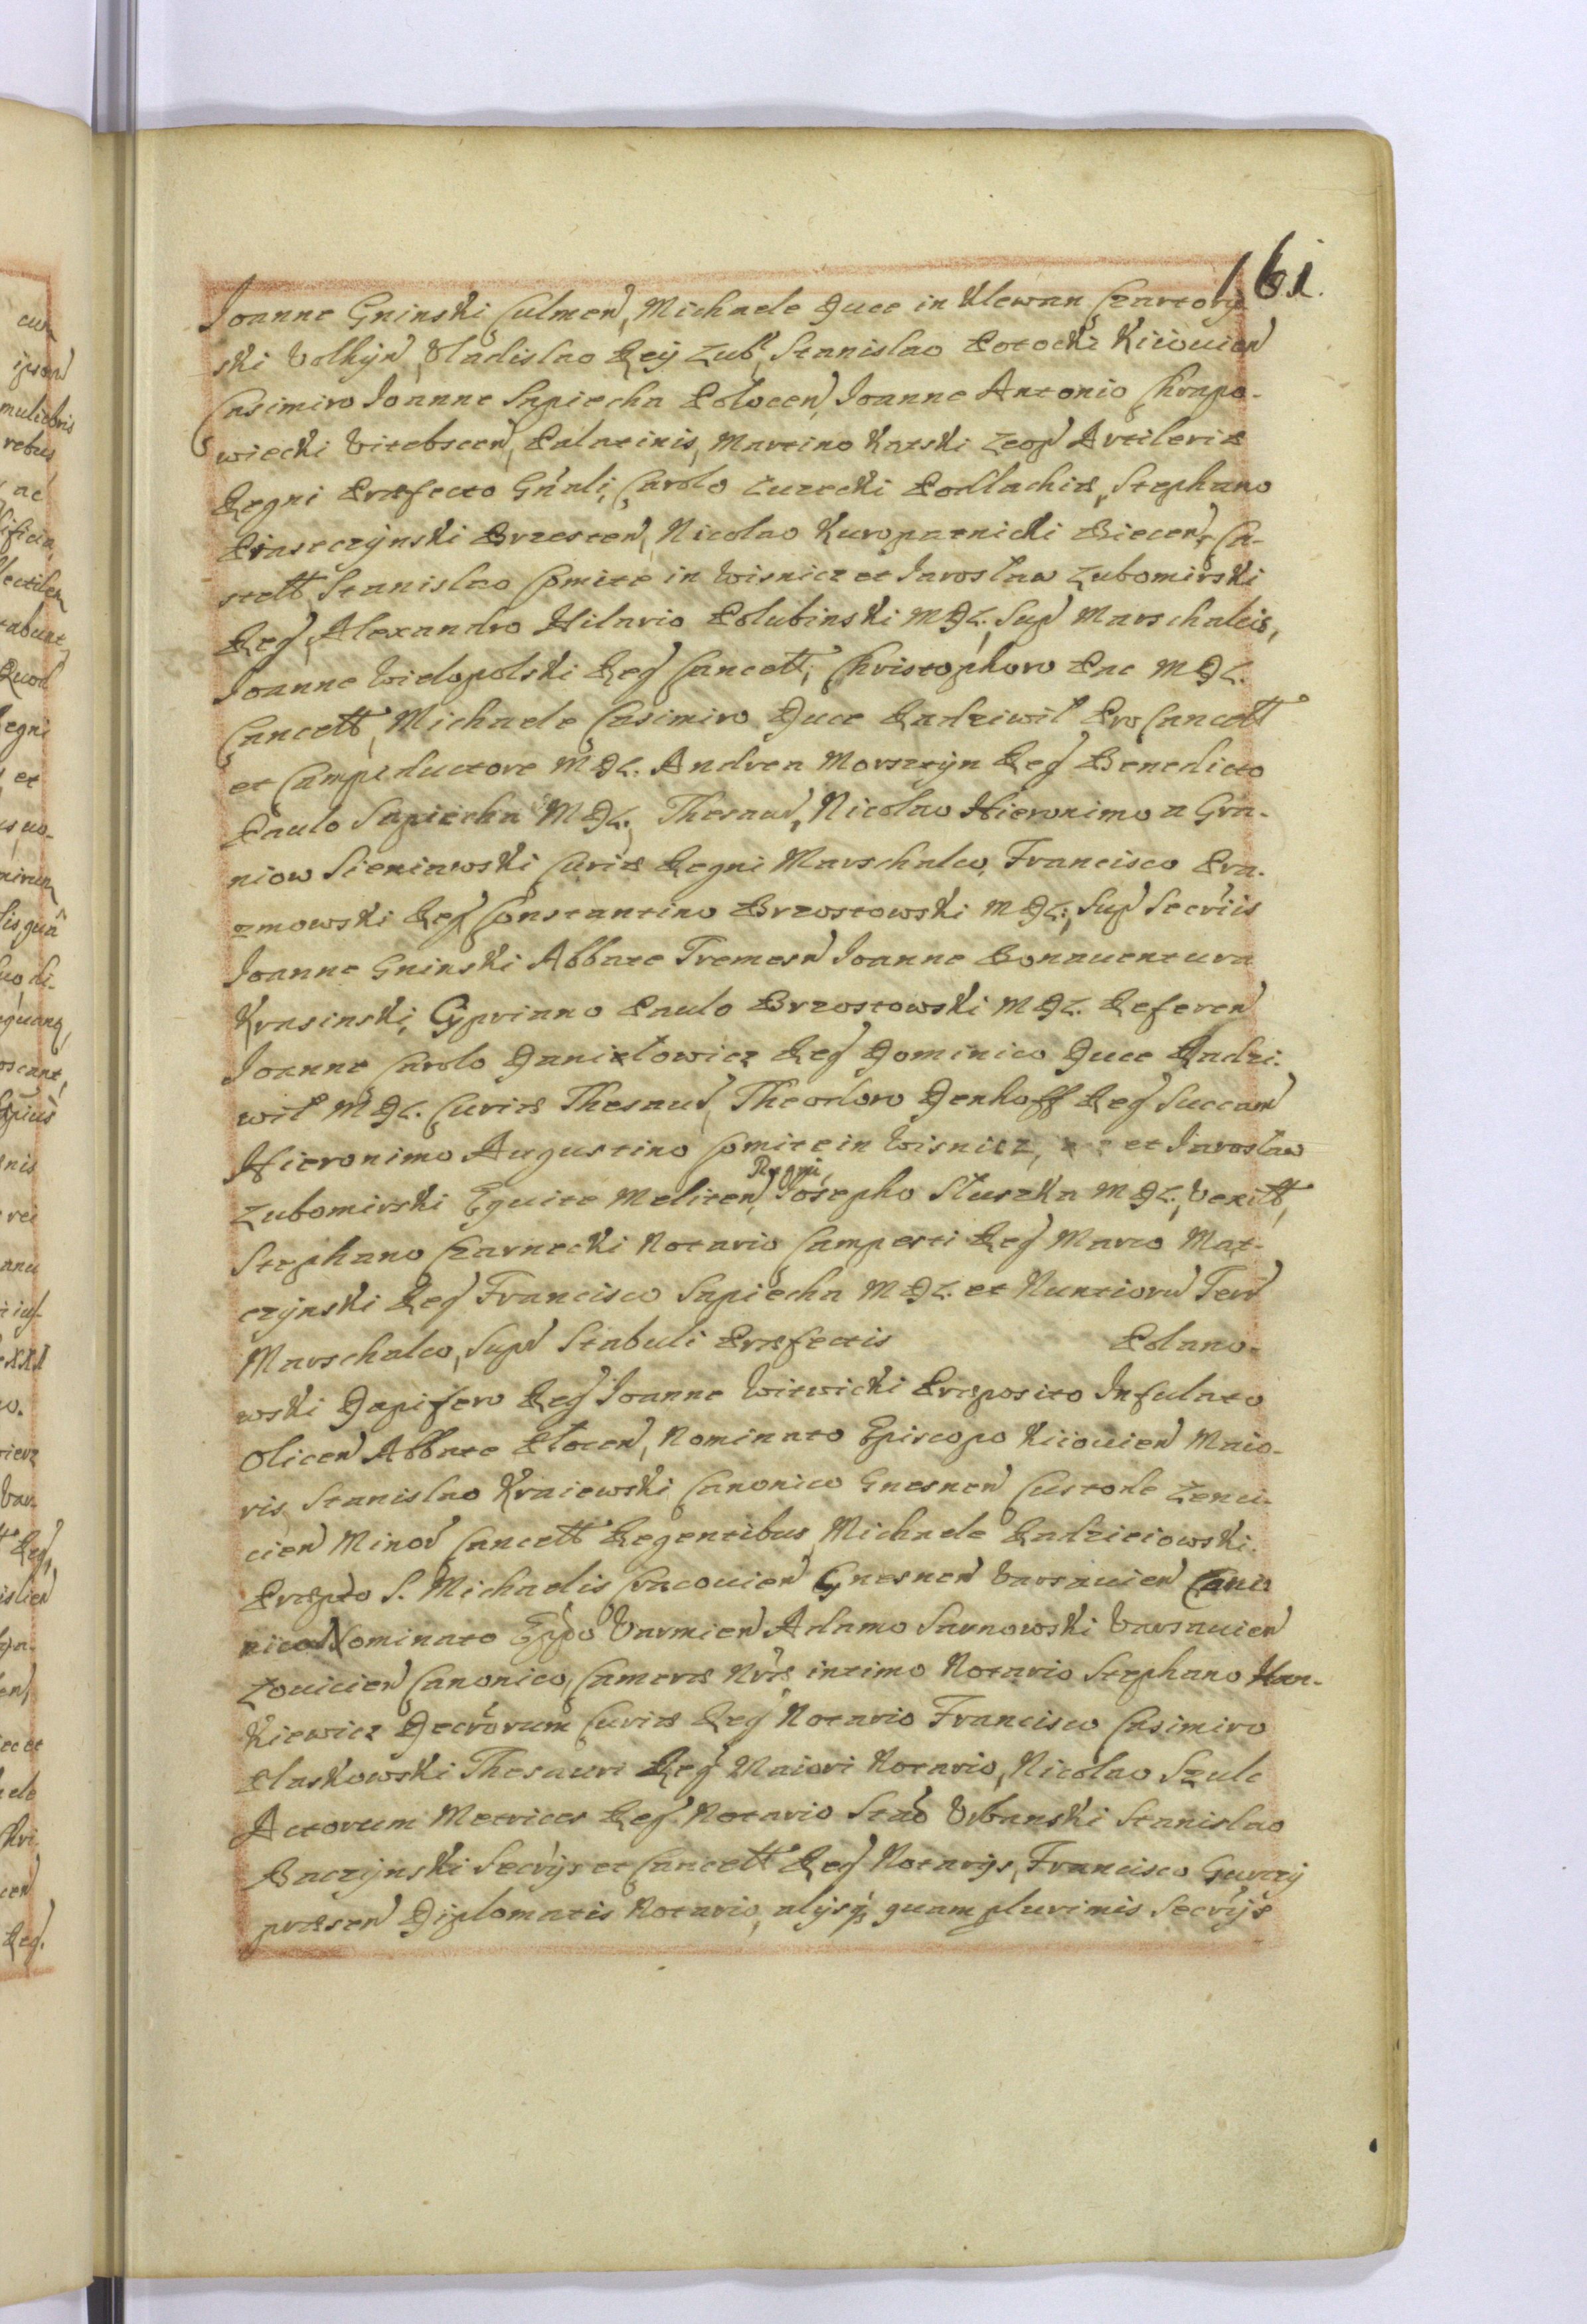 161.
Joanne Gninski Culmen, Michaele Duce in Klewan Czartory-
ski Volhyn, Vladislao Rey Lub, Stanislao Potocki Kiiouien
Casimiro Joanne Sapiecha Polocen, Joanne Antonio Chrapo-
wiecki Vitebscen, Palatinis, Martino Katski Leop Artileriæ
Regni Præfecto Gnali, Carolo Luzecki Podlachiæ, Stephano
Piaseczynski Brzesten, Nicolao Kuropatnicki Biecen, Ca-
stell, Stanislao Comite in Wisnicz et Jaroslaw Lubomirski
Reg, Alexandro Hilario Polubinski MDL. Sup Marschalcis,
Joanne Wielopolski Reg Cancell, Christophoro Pac MDL.
Cancell, Michaele Casimiro Duce Radziwił Pro Cancell
et Campiductore MDL. Andrea Morsztyn Reg Benedicto
Paulo Sapiecha MDL. Thesaur, Nicolao Hieronimo a Gra-
niow Sieniawski Curiæ Regni Marschalco, Francisco Pra-
zmowski Reg Constantino Brzostowski MDL. Sup Secriis
Joanne Gninski Abbate Tremesn Joanne Bonauentura
Krasinski, Cypriano Paulo Brzostowski MDL. Referen
Joanne Carolo Daniełowicz Reg Dominico Duce Radzi-
wił MDL. Curiæ Thesaur, Theodoro Denhoff Reg Succam
Hieronimo Augustino Comite in Wisnicz, et Jarosław
Lubomirski Equite Meliten, Regni, Josepho Słuszka MDL. Vexill,
Stephano Czarnecki Notario Campestri Reg Marco Mat-
czynski Reg Francisco Sapiecha MDL. et Nuntioru Terr
Marschalco, Sup Stabuli Præfectis Polano-
wski Dapifero Reg Joanne Witwicki Præposito Infulato
Olicen Abbate Plocen, Nominato Episcopo Kiiouien Maio-
ris Stanislao Kraiewski Canonico Gnesnen Custode Lenci-
cien Minor Cancell Regentibus, Michaele Radzieiowski
Præpto S. Michaelis Cracouien Gnesnen Varsauien Cano
nico Nominato Eppo Varmien Adamo Sarnowski Varsauien
Louicien Canonico, Cameræ Nræ intimo Notario Stephano Han-
kiewicz Decrorum Curiæ Reg Notario Francisco Casimiro
Płaskowski Thesauri Reg Maiori Notario, Nicolao Szulc
Actorum Metrices Reg Notario Stao Urbanski Stanislao
Baczynski Secrijs et Cancell Reg Notarijs, Francisco Gurczy
præsen Diplomatis Notario, alijsq quam plurimis Secrijs